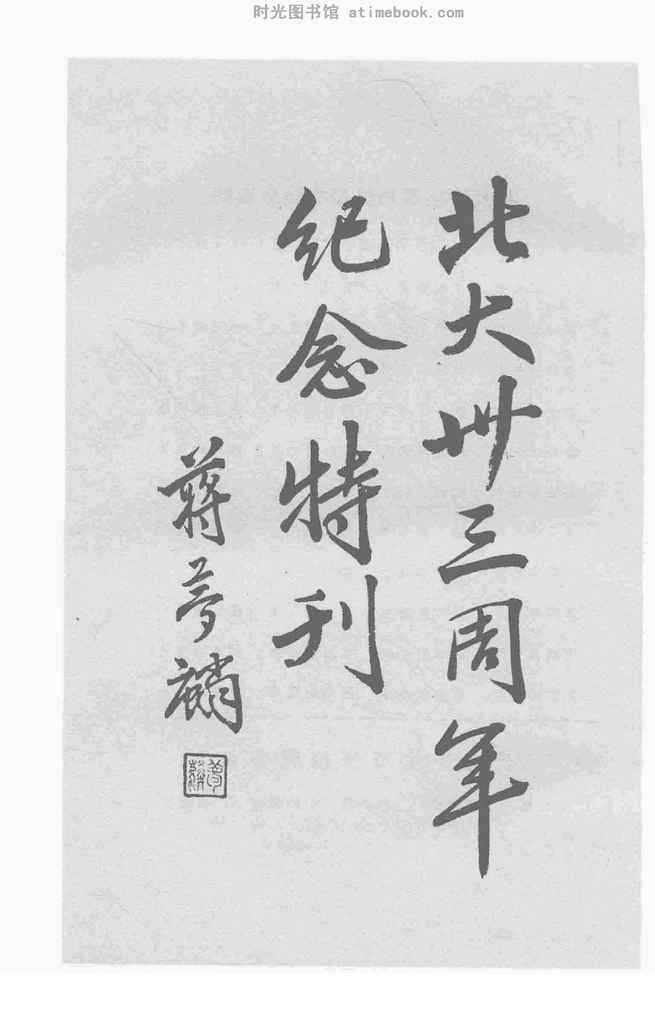 时光图书馆 atimebook.com
北大卅三周年
纪念特刊
蒋梦麟